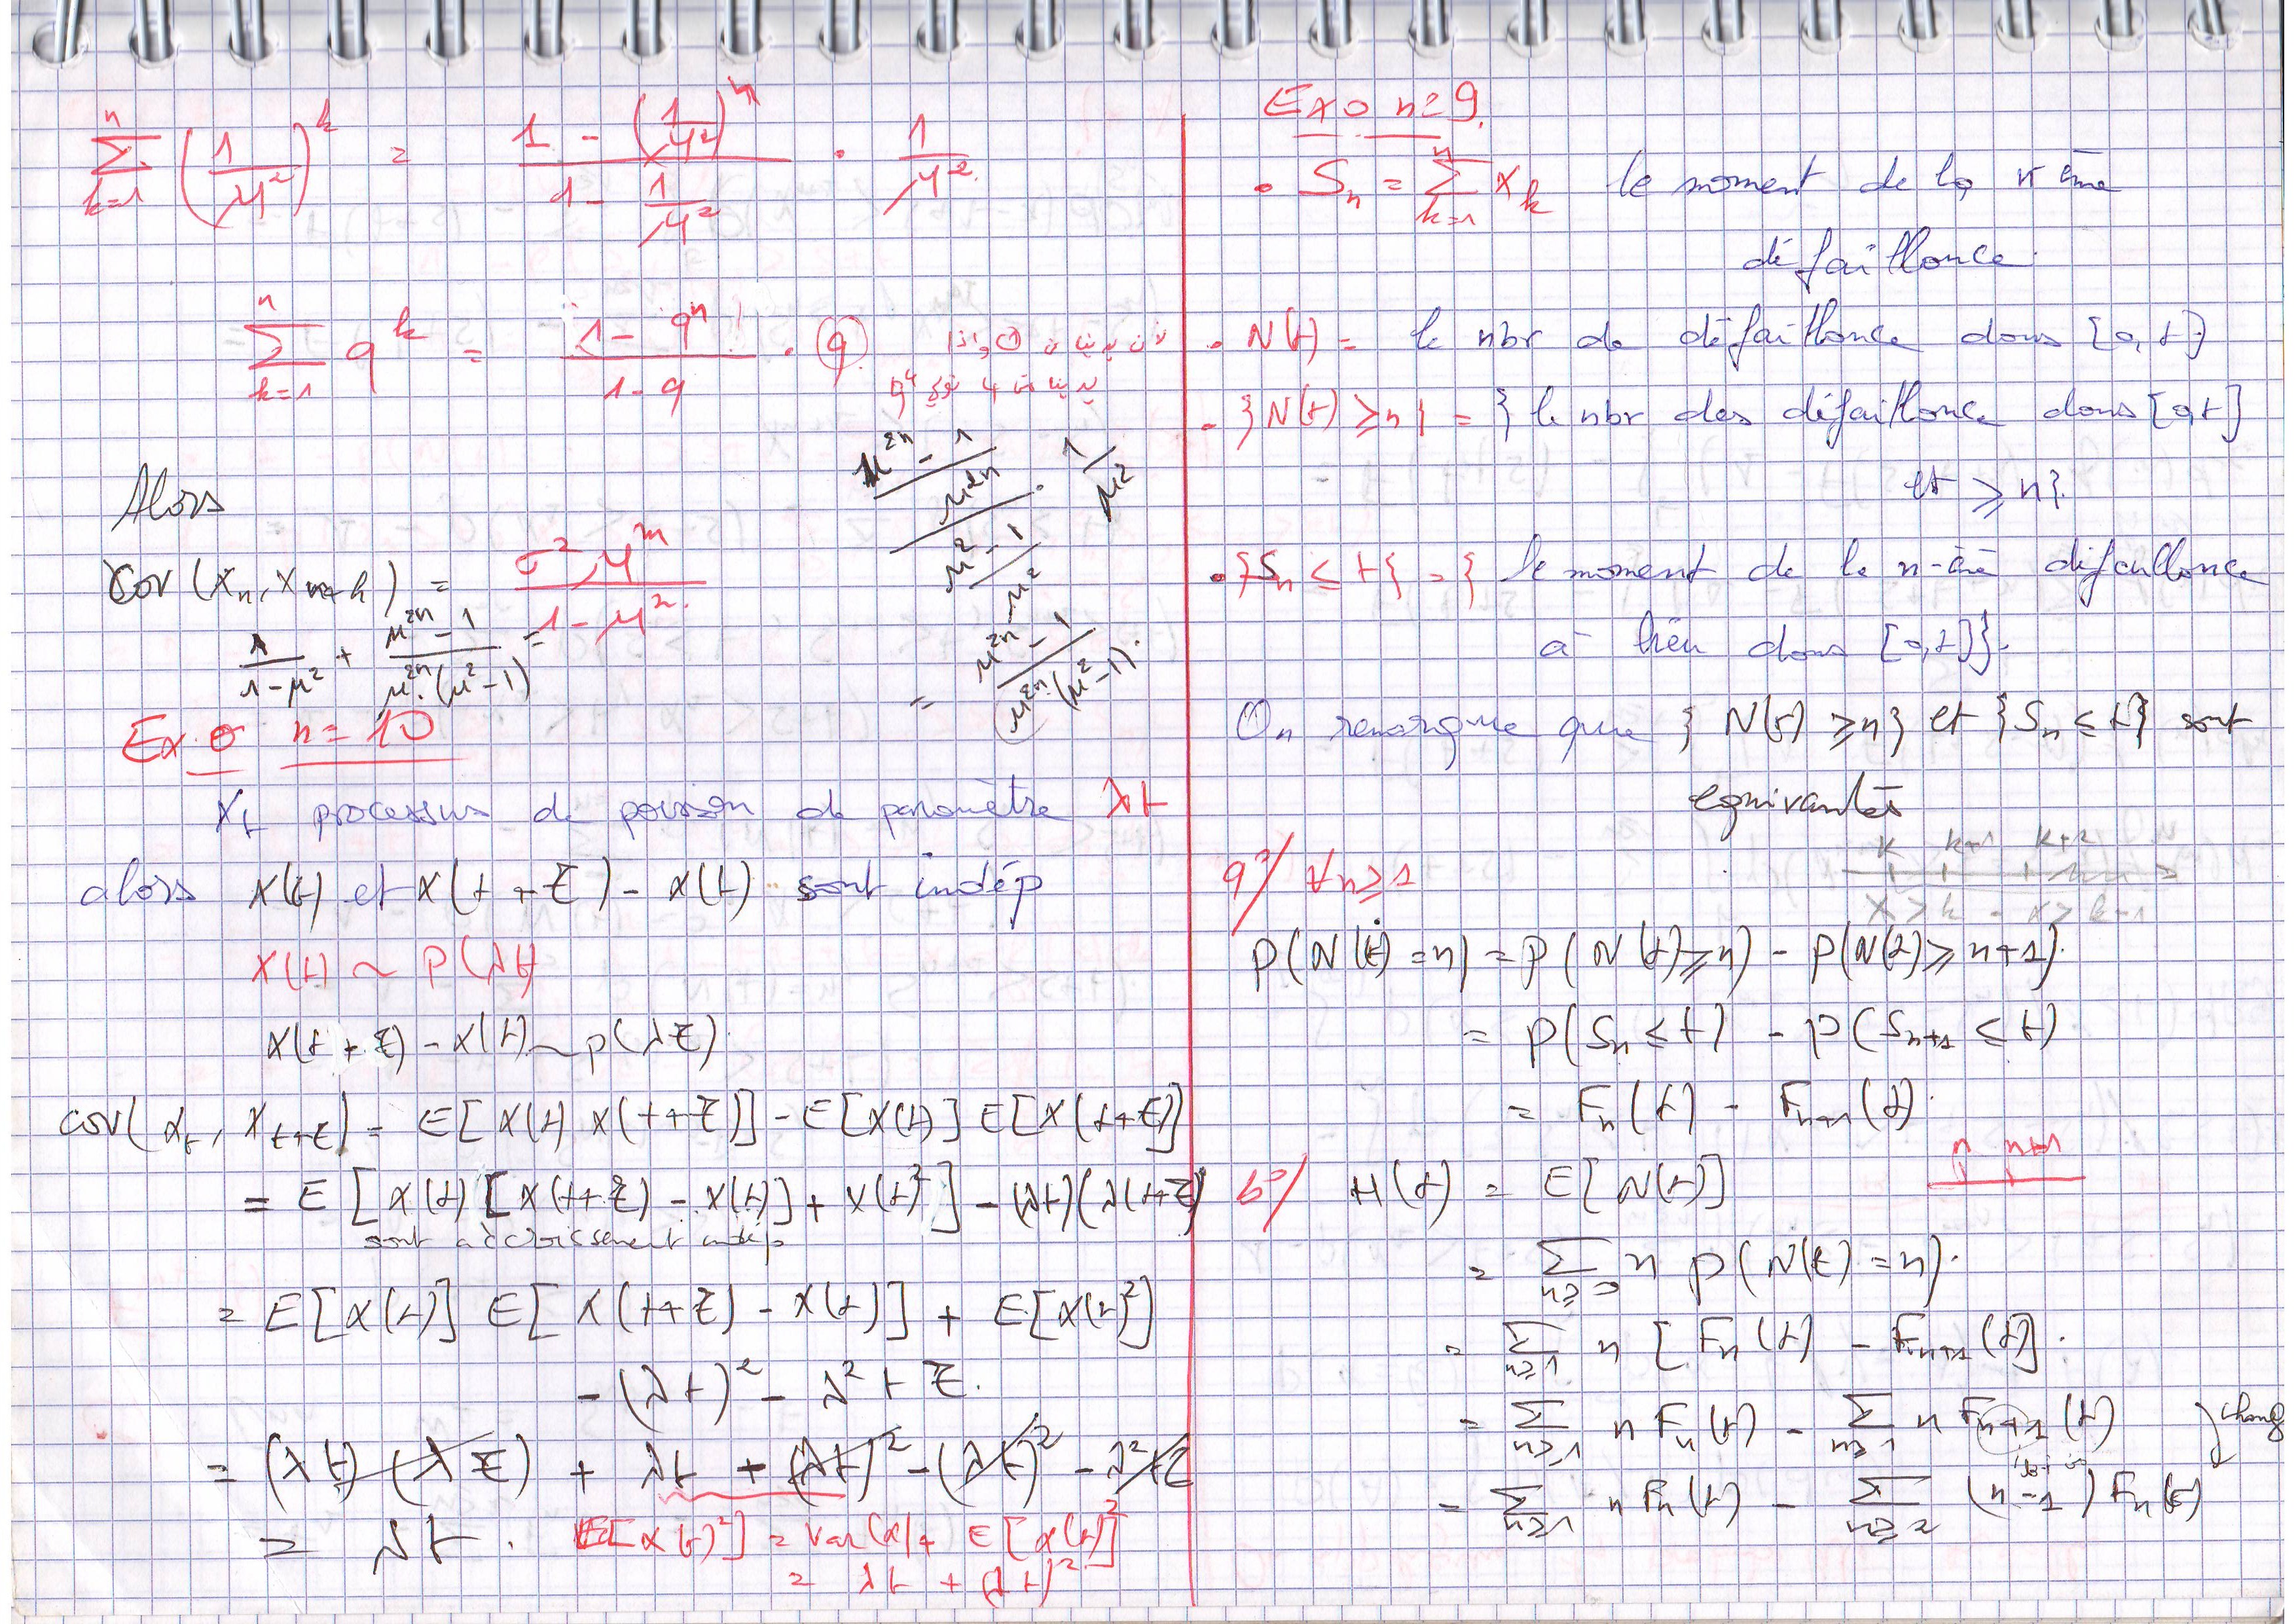 ∑_{k=1}^{n} (1/μ²)^k = (1 - (1/μ²)^n)/(1 - 1/μ²) · 1/μ²
∑_{k=1}^{n} q^k = (1 - q^n)/(1 - q) · q
Alors
(μ^{2n} - 1)/μ^{2n} / ((μ² - 1)/μ²) · 1/μ²
= (μ^{2n} - 1)/(μ^{2n}·(μ² - 1)).
Cov(X_n, X_{n+k}) = σ² μ^m/(1 - μ²).
1/(1-μ²) + (μ^{2n} - 1)/(μ^{2n}·(μ² - 1)) =
Exo n = 10
X_t processus de poission de paramètre λt
alors X(t) et X(t + τ) - X(t) sont indép
X(t) ~ P(λt)
X(t + τ) - X(t) ~ p(λτ).
cov(X_t, X_{t+τ}) = E[X(t) X(t+τ)] - E[X(t)] E[X(t+τ)]
= E[X(t) [X(t+τ) - X(t)] + X(t)²] - (λt)(λ(t+τ)
sont accroissement indép
= E[X(t)] E[X(t+τ) - X(t)] + E[X(t)²]
- (λt)² - λ² t τ.
= (λt) (λτ) + λt + (λt)² - (λt)² - λ² tτ
= λt.
E[X(t)²] = Var(X) + E[X(t)]²
= λt + (λt)²
Exo n=9.
• S_n = ∑_{k=1}^{n} X_k le moment de la n ème
défaillance.
• N(t) = le nbr de défaillance dans [0, t]
• {N(t) ≥ n} = {le nbr des défaillance dans [0, t]
et ≥ n}.
• {S_n ≤ t} = { le moment de la n-ère défaillance
à lieu dans [0, t]}.
On remarque que {N(t) ≥ n} et {S_n ≤ t} sont
equivantes
k k+1 k+2
X > k - X > k-1
a°/ ∀n ≥ 1
P(N(t) = n) = P(N(t) ≥ n) - P(N(t) ≥ n+1).
= P(S_n ≤ t) - P(S_{n+1} ≤ t)
= F_n(t) - F_{n+1}(t).
n n+1
b°/ H(t) = E[N(t)]
= ∑_{n≥0} n P(N(t) = n).
= ∑_{n≥1} n [F_n(t) - F_{n+1}(t)].
= ∑_{n≥1} n F_n(t) - ∑_{n≥1} n F_{n+1}(t) } chang
= ∑_{n≥1} n F_n(t) - ∑_{n≥2} (n-1) F_n(t)